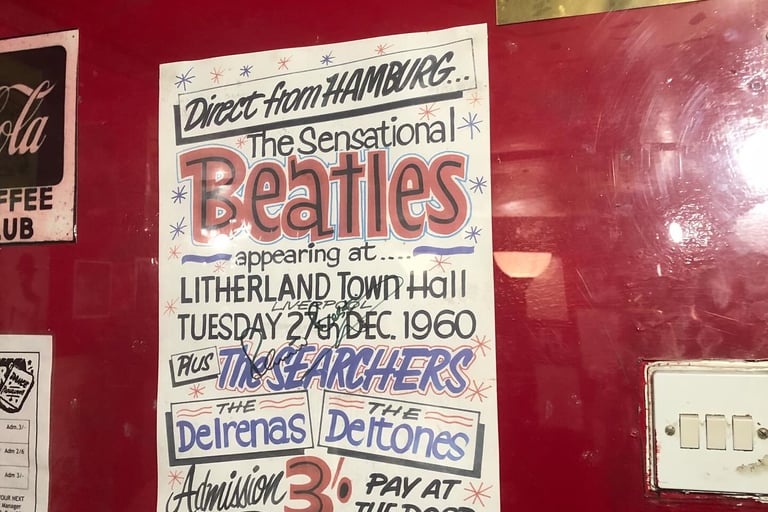 Direct from HAMBURG...
The Sensational
Beatles
appearing at....
LITHERLAND TOWN Hall
LIVERPOOL
TUESDAY 27th DEC. 1960
PLUS THE SEARCHERS
THE Delrenas
THE Deltones
Admission 3/- PAY AT
THE DOOR
Cola
FFEE
UB
Adm. 3/-
Adm 2/6
Adm 3/-
YOUR NEXT
Manager